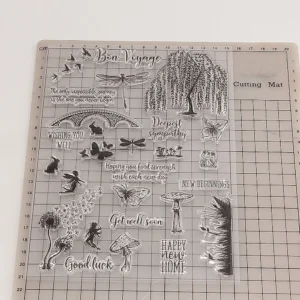 Bon Voyage
The only impossible journey
is the one you never begin
Deepest
sympathy
WISHING YOU
WELL
Cutting Mat
Hoping you find strength
with each new day
NEW BEGINNINGS
Get well soon
HAPPY
new
HOME
Good luck